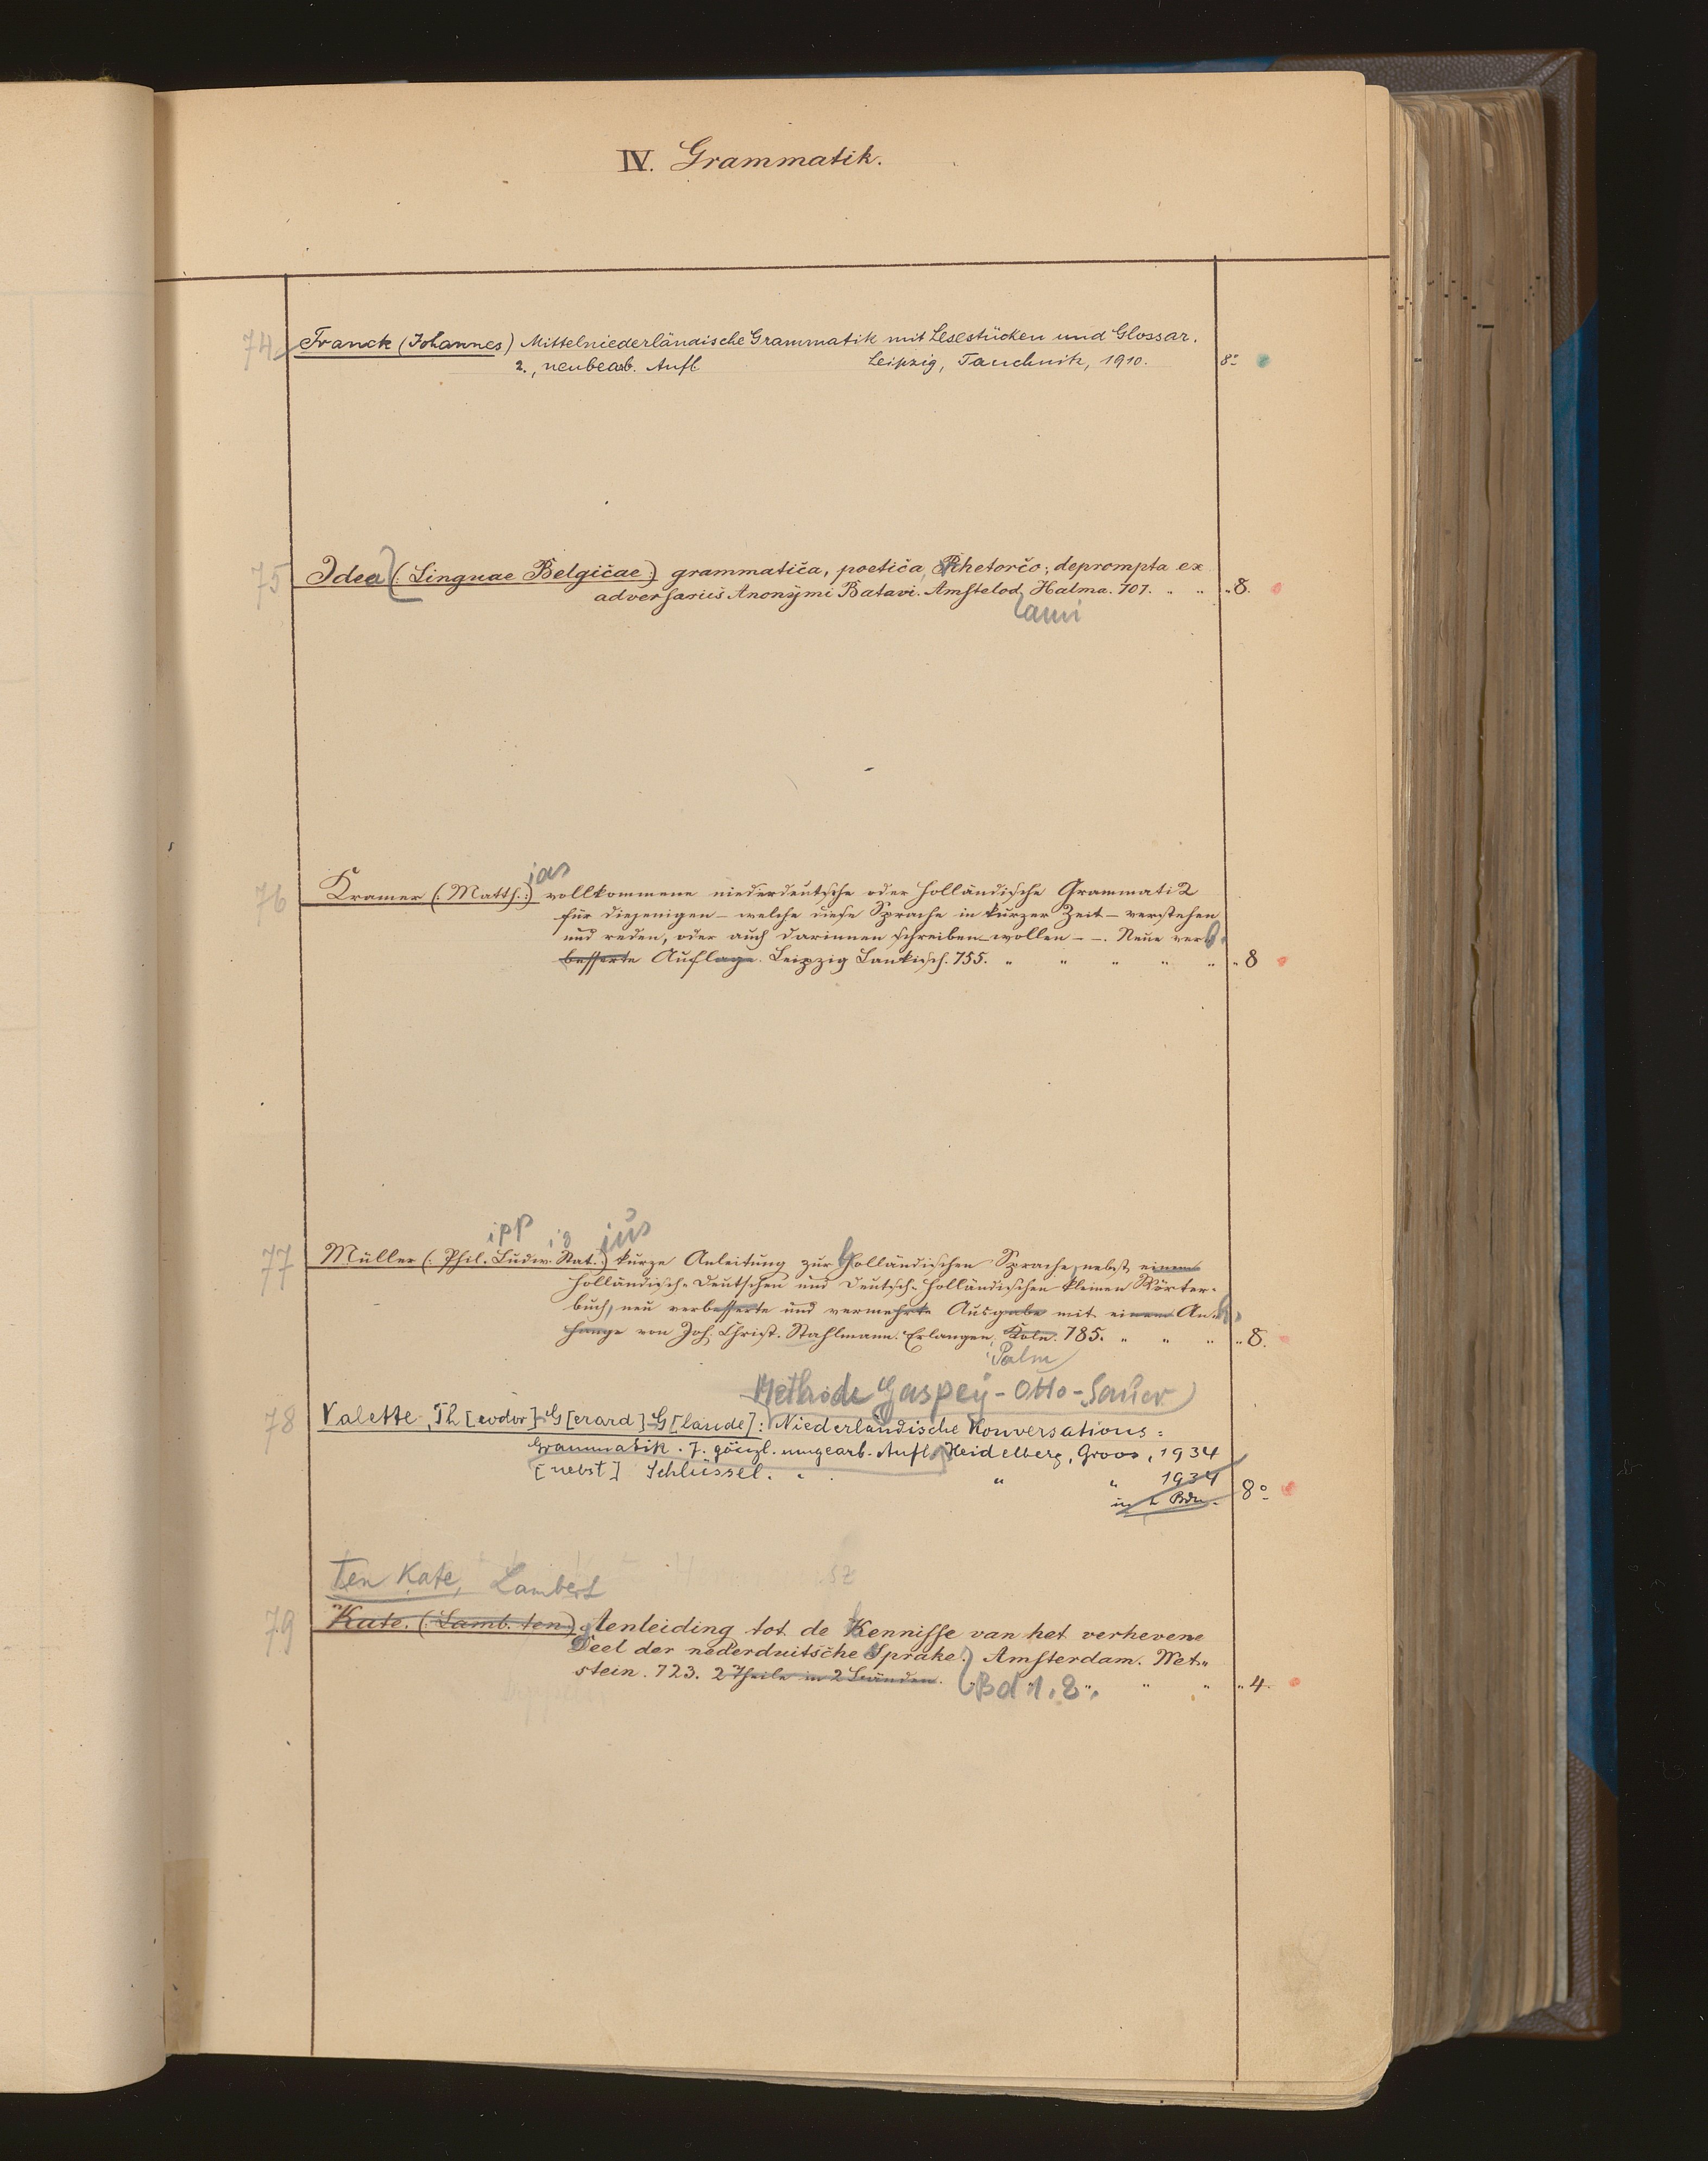 IV. Grammatik.
74 Franck (Johannes) Mittelniederländische Grammatik mit Lesestücken und Glossar.
2., neubearb. Aufl. Leipzig, Tauchnitz, 1910. 8°
75 Idea (: Linguae Belgicae :) grammatica, poetica, Rhetorico; deprompta ex
adversariis Anonÿmi Batavi. Amstelod. Halma. 707. " " "8.
ami
ias
76 Kramer (: Matth. :) vollkommene niederdeutsche oder holländische Grammatik
für diejenigen – welche diese Sprache in kurzer Zeit – verstehen
und reden, oder auch darinnen schreiben wollen – –. Neue ver=
besserte Auflage. Leipzig Lankisch. 755. " " " " " "8
ipp ig ius
77 Müller (: Phil. Ludw. Stat. :) kurze Anleitung zur holländischen Sprache, nebst einem
holländisch-Deutschen und Deutsch-holländischen kleinen Wörter-
buch, neu verbesserte und vermehrte Ausgabe mit einem An=
hange von Joh. Christ. Stahlmann. Erlangen. Köln. 785. " " " "8.
Palm
Methode Gaspey-Otto-Sauer
78 Valette, Th[eodor] G[erard] G[laude]: Niederländische Konversations=
Grammatik. 7. gänzl. umgearb. Aufl. Heidelberg, Groos, 1934
[nebst] Schlüssel. " " " 1934
in 2 Bdn. 8°
Ten Kate, Lambert
79 Kate. (: Lamb. ten :) Aenleiding tot de Kennisse van het verhevene
Deel der nederduitsche Sprake. Amsterdam. Wet=
stein. 723. 2 Theile in 2 Bänden. Bd 1.2. " " "4.